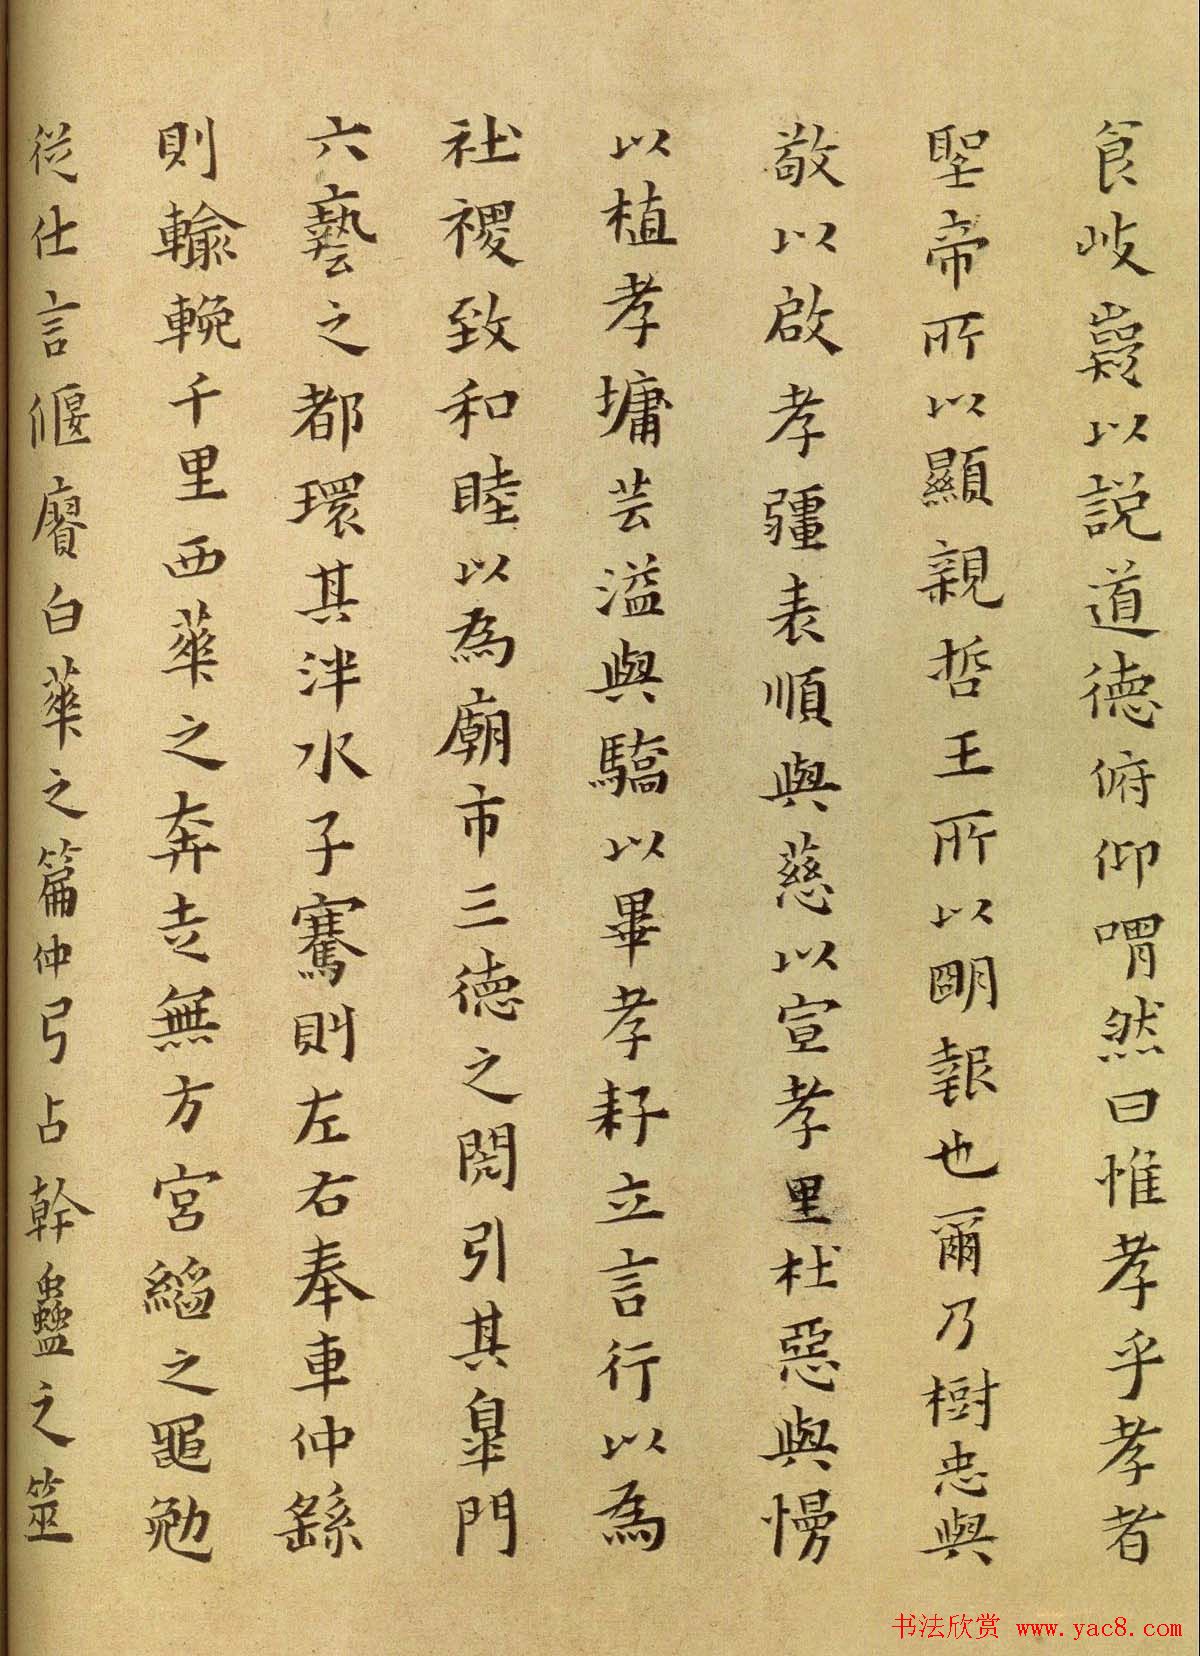 食岐嶷以説道德俯仰喟然曰惟孝乎孝者
聖帝所以顯親哲王所以明報也爾乃樹忠與
敬以啟孝疆表順與慈以宣孝里杜惡與慢
以植孝墉芸溢與驕以畢孝耔立言行以為
社稷致和睦以為廟市三德之閎引其皐門
六藝之都環其泮水子騫則左右奉車仲繇
則輸輓千里西華之奔走無方宮縚之黽勉
從仕言偃賡白華之篇仲弓占幹蠱之筮
书法欣赏 www.yac8.com